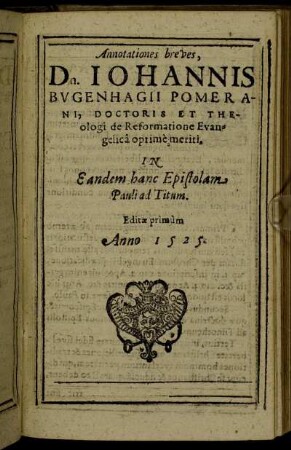 Annotationes breves,
Dn. IOHANNIS
BVGENHAGII POMERA-
NI, DOCTORIS ET THE-
ologi de Reformatione Evan-
gelicâ optimè meriti,
IN
Eandem hanc Epistolam
Pauli ad Titum.
Editæ primùm
Anno 1525.